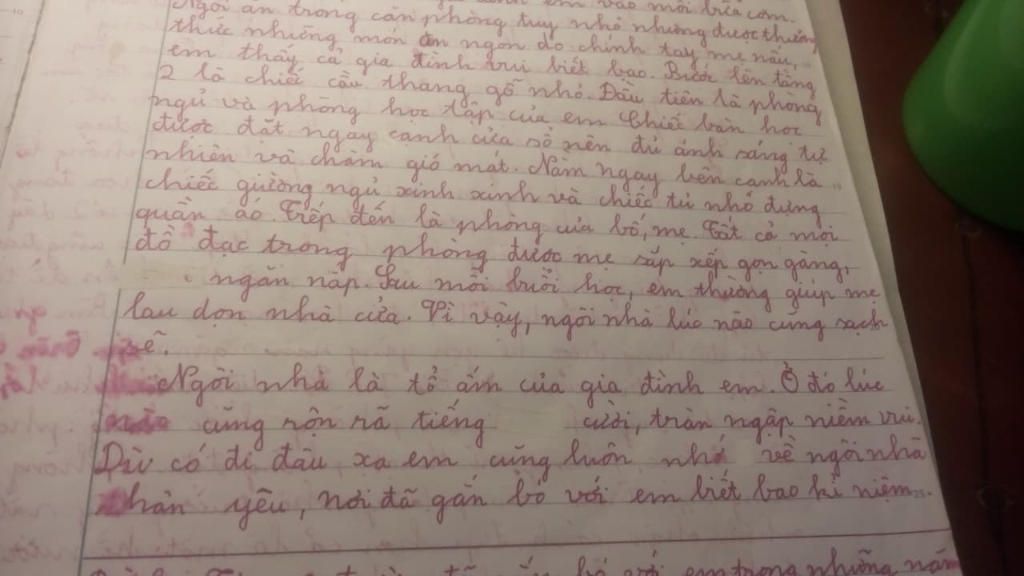 em vào mỗi bữa cơm.
Ngồi ăn trong căn phòng tuy nhỏ nhưng được thưởng
thức những món ăn ngon do chính tay mẹ nấu,
em thấy cả gia đình vui biết bao. Bước lên tầng
2 là chiếc cầu thang gỗ nhỏ. Đầu tiên là phòng
ngủ và phòng học tập của em. Chiếc bàn học
được đặt ngay cạnh cửa sổ nên đủ ánh sáng tự
nhiên và chậm gió mát. Nằm ngay bên cạnh là
chiếc giường ngủ xinh xinh và chiếc tủ nhỏ đựng
quần áo. Tiếp đến là phòng của bố, mẹ. Tất cả mọi
đồ đạc trong phòng được mẹ sắp xếp gọn gàng,
ngăn nắp. Sau mỗi buổi học, em thường giúp mẹ
lau dọn nhà cửa. Vì vậy, ngôi nhà lúc nào cũng sạch
sẽ.
Ngôi nhà là tổ ấm của gia đình em. Ở đó lúc
nào cũng rộn rã tiếng cười, tràn ngập niềm vui.
Dù có đi đâu xa em cũng luôn nhớ về ngôi nhà
thân yêu, nơi đã gắn bó với em biết bao kỉ niệm.
bó với em trong những năm